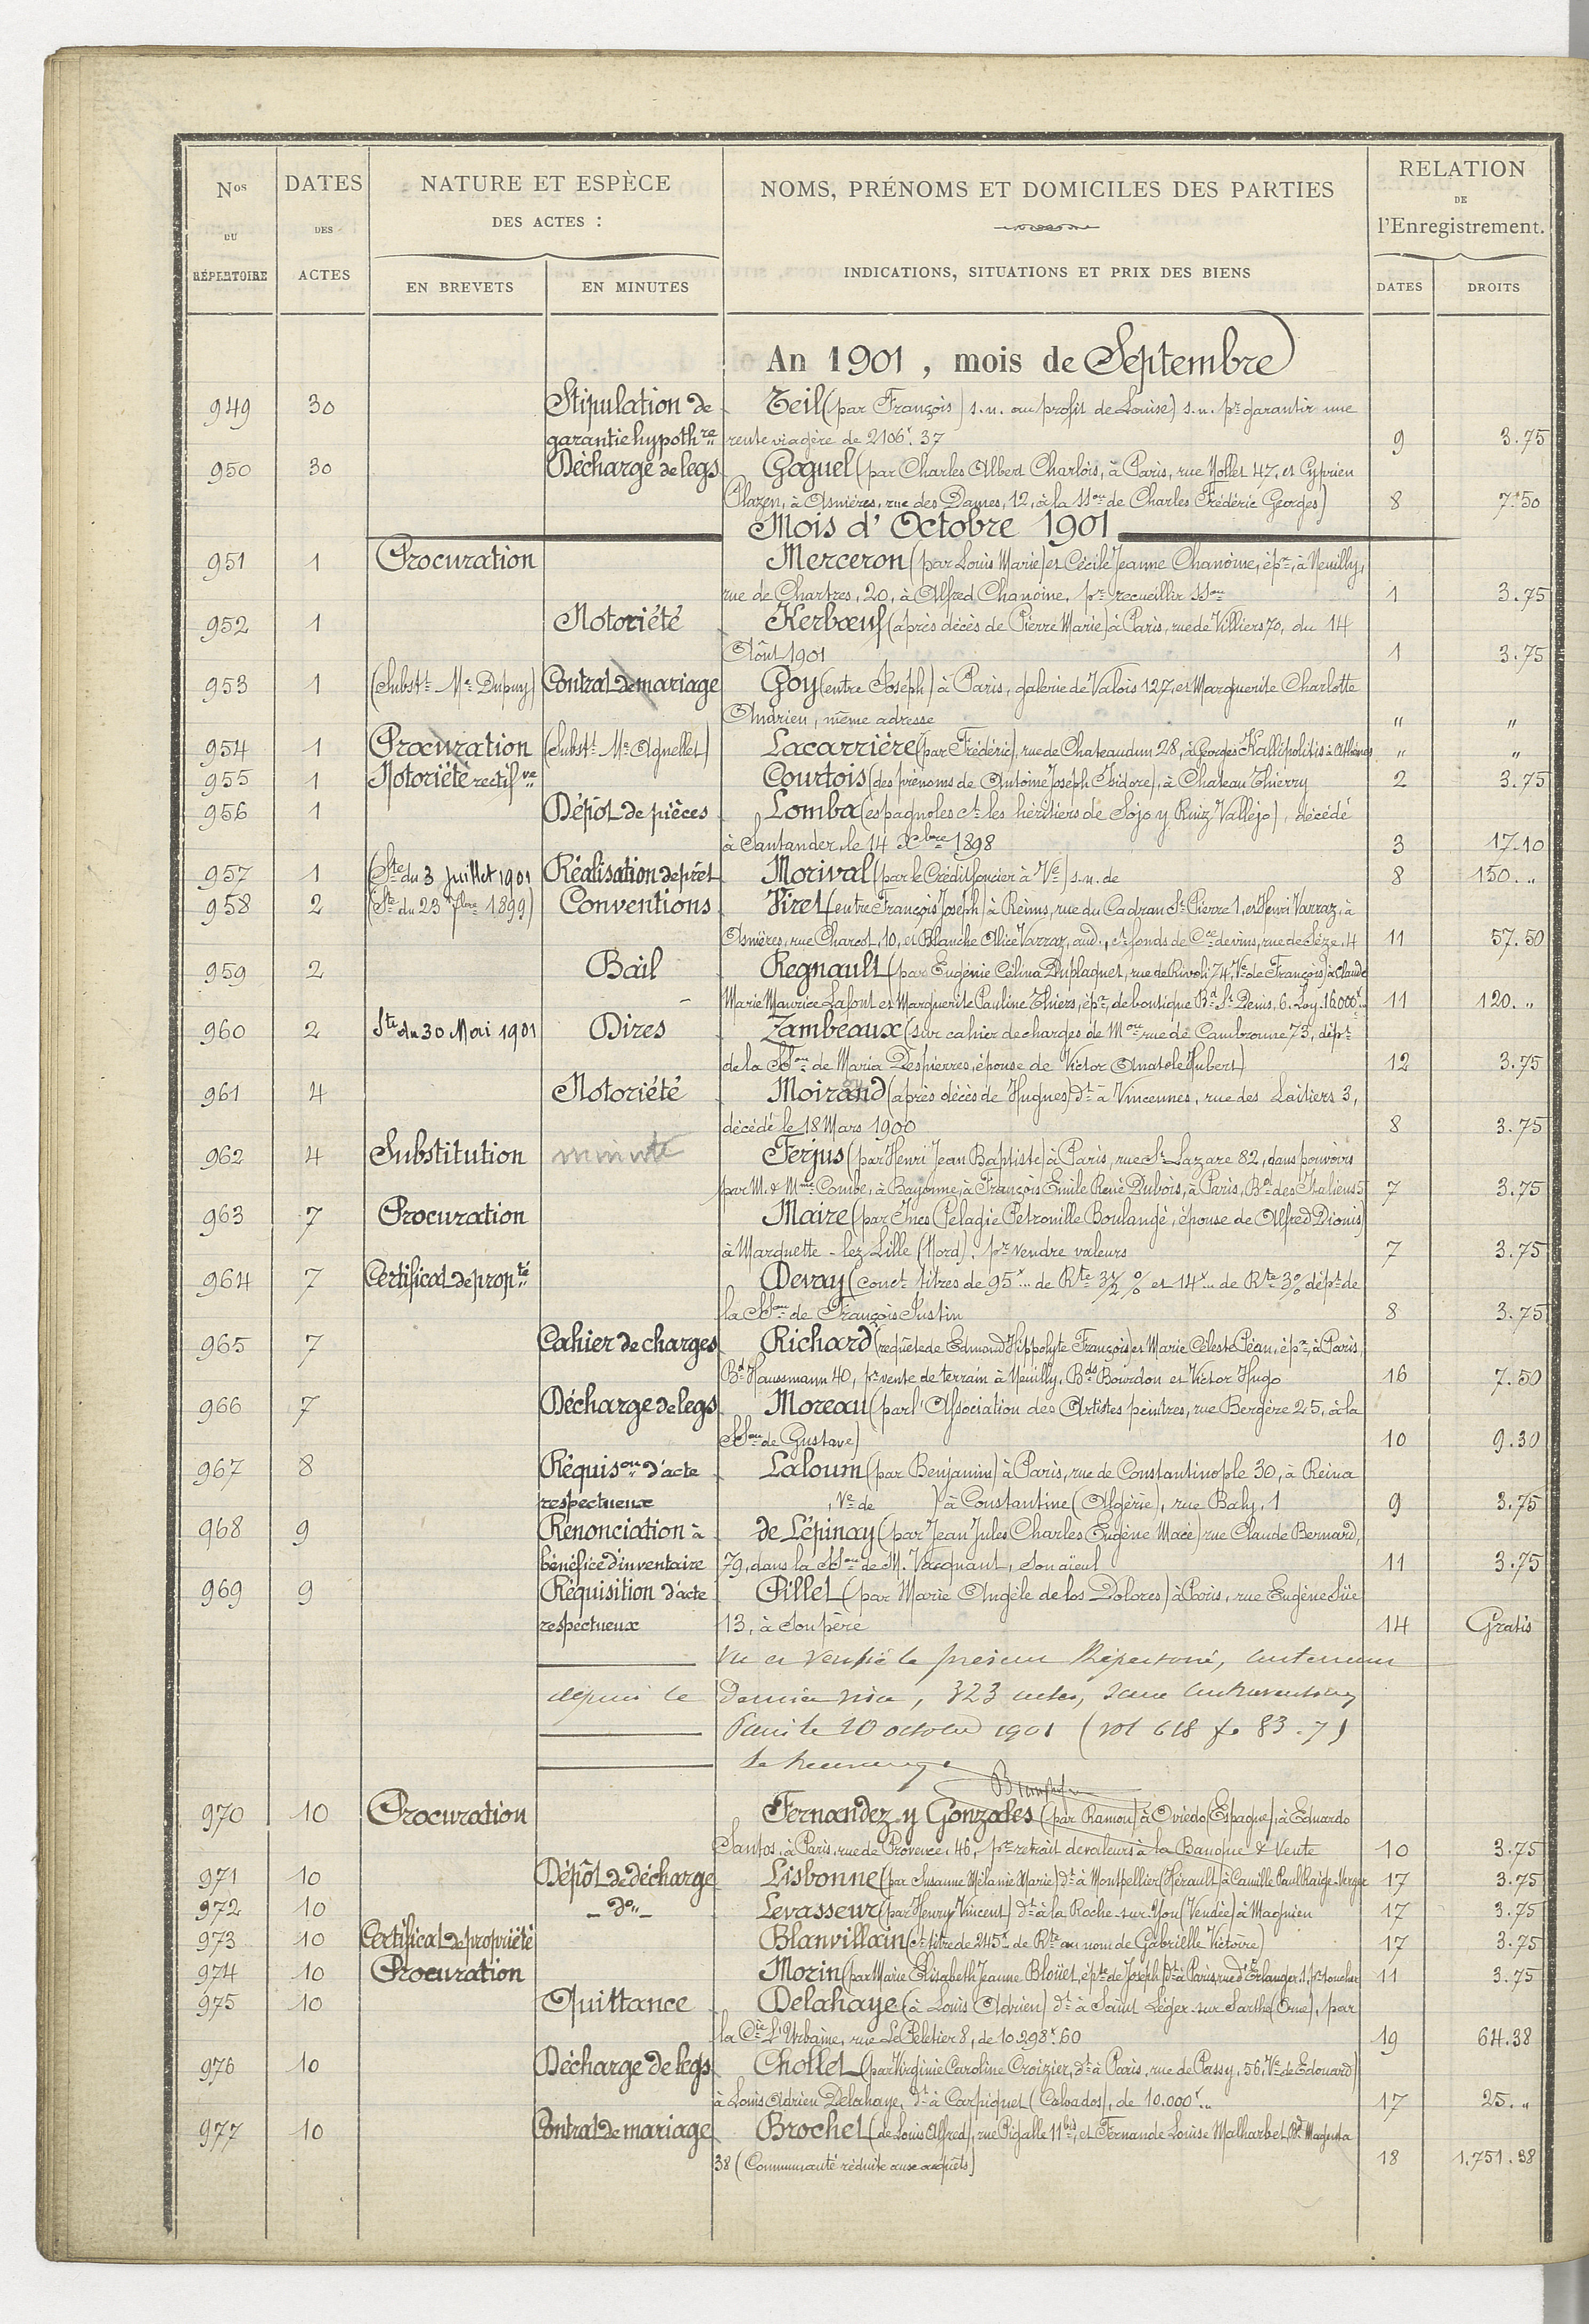 Nos DU RÉPERTOIRE
DATES DES ACTES
NATURE ET ESPÈCE
DES ACTES :
EN BREVETS
EN MINUTES
NOMS, PRÉNOMS ET DOMICILES DES PARTIES
INDICATIONS, SITUATIONS ET PRIX DES BIENS
RELATION
DE
l'Enregistrement.
DATES
DROITS
An 1901, mois de Septembre
949 30 Stipulation de Teil (par François) s.n. au profit de Louise) s.n. pr garantir une
garantie hypothre rente viagère de 2106f.37 9 3.75
950 30 Décharge de legs Goguel (par Charles Albert Charlois, à Paris, rue Nollet 47, et Cyprien
Plazen, à Asnières, rue des Dames, 12, à la SSon de Charles Frédéric Georges) 8 7.50
Mois d'Octobre 1901
951 1 Procuration Merceron (par Louis Marie) et Cécile Jeanne Chanoine, ép.x, à Neuilly,
rue de Chartres, 20, à Alfred Chanoine, pr recueillir SSon 1 3.75
952 1 Notoriété Kerboeuf (après décès de Pierre Marie) à Paris, rue de Villiers 70, du 14
Août 1901 1 3.75
953 1 (Subst.t Me Dupuy) Contrat de mariage Goy (entre Joseph) à Paris, galerie de Valois 127, et Marguerite Charlotte
Andrieu, même adresse " "
954 1 Procuration (Subst.t Me Agnellet) Lacarrière (par Frédéric), rue de Chateaudun 28, à Georges Kallipolitis à Athènes " "
955 1 Notoriété rectif.ve Courtois (des prénoms de Antoine Joseph Isidore), à Chateau Thierry 2 3.75
956 1 Dépôt de pièces Lomba (espagnoles ct les héritiers de Sojo y Ruiz Vallejo), décédé
à Santander, le 14 Xbre 1898 3 17.10
957 1 (Ste du 3 Juillet 1901 Réalisation de prêt Morival (par le Crédit foncier à Ve) s.n. de 8 150. "
958 2 (Ste du 23 7bre 1899) Conventions Viret (entre François Joseph) à Reims, rue du Cadran St Pierre 1, et Henri Varraz, à
Asnières, rue Charcot, 10, et Blanche Alice Varraz, aud., ct fonds de Cce de vins, rue de Sèze, 4 11 57.50
959 2 Bail Regnault (par Eugénie Célina Duplaquet, rue de Rivoli 74, Ve de François) à Claude
Marie Maurice Lafont et Marguerite Pauline Thiers, ép.x, de boutique Bd St Denis, 6. Loy. 16.000f " 11 120. "
960 2 Ste du 30 Mai 1901 Dires Zambeaux (sur cahier de charges de Mon rue de Cambronne 73, dépt
de la SSon de Maria Despierres, épouse de Victor Anatole Hubert) 12 3.75
961 4 Notoriété Moirand (après décès de Hugues) dt à Vincennes, rue des Laitiers 3,
décédé le 18 Mars 1900 8 3.75
962 4 Substitution minute Ferjus (par Henri Jean Baptiste) à Paris, rue St Lazare 82, dans pouvoirs
par M. & Mme Combe, à Bayonne, à François Emile René Dubois, à Paris, Bd des Italiens 5 7 3.75
963 7 Procuration Maire (par Ines Pelagie Petronille Boulangé, épouse de Alfred Dionis)
à Marquette-lez-Lille (Nord), pr vendre valeurs 7 3.75
964 7 Certificat de propté Devay (conct titres de 95f... de Rte 3 1/2 % et 14f... de Rte 3% dépt de
la SSon de François Justin 8 3.75
965 7 Cahier de charges Richard (requête de Edmond Hippolyte François) et Marie Céleste Péan, ép.x, à Paris,
Bd Haussmann 40, pr vente de terrain à Neuilly, Bds Bourdon et Victor Hugo 16 7.50
966 7 Décharge de legs Moreau (par l'Association des Artistes peintres, rue Bergère 25, à la
SSon de Gustave) 10 9.30
967 8 Réquison d'acte Laloum (par Benjamin) à Paris, rue de Constantinople 30, à Reina
respectueux , Ve de ) à Constantine (Algérie), rue Baly, 1 9 3.75
968 9 Renonciation à de Lépinay (par Jean Jules Charles Eugène Macé) rue Claude Bernard,
bénéfice d'inventaire 79, dans la SSon de M. Vacquant, son aïeul 11 3.75
969 9 Réquisition d'acte Pillet (par Marie Angèle de los Dolores) à Paris, rue Eugène Süe
respectueux 13, à son père 14 Gratis
Vu et vérifié le présent Répertoire, contenant
depuis le dernier visa, 323 actes, sans contravention
Paris le 10 octobre 1901 (vol 618 fo 83. 7)
970 10 Procuration Fernandez y Gonzales (par Ramon) à Oviedo (Espagne), à Eduardo
Santos, à Paris, rue de Provence, 46, pr retrait de valeurs à la Banque & Vente 10 3.75
971 10 Dépôt de décharge Lisbonne (par Susanne Mélanie Marie) dt à Montpellier (Hérault) à Camille Paul Raige-Verger 17 3.75
972 10 - do - Levasseur (par Henry Vincent) dt à la Roche-sur-Yon (Vendée) à Magnien 17 3.75
973 10 Certificat de propriété Blanvillain (ct titre de 245f de Rte au nom de Gabrielle Victoire) 17 3.75
974 10 Procuration Morin (par Marie Elisabeth Jeanne Blouet, épse de Joseph) dt à Paris, rue d'Erlanger, 1, pr toucher 11 3.75
975 10 Quittance Delahaye (à Louis Adrien) dt à Saint Léger-sur-Sarthe (Orne), par
la Cie L'Urbaine, rue Le Peletier 8, de 10298f.60 19 64.38
976 10 Décharge de legs Chollet (par Virginie Caroline Croizier, dt à Paris, rue de Passy, 56, Ve de Edouard)
à Louis Adrien Delahaye, dt à Carpiquet (Calvados), de 10.000f " 17 25. "
977 10 Contrat de mariage Brochet (de Louis Alfred), rue Pigalle 11bis, et Fernande Louise Malharbet, Bd Magenta
38 (Communauté réduite aux acquêts) 18 1.751.38